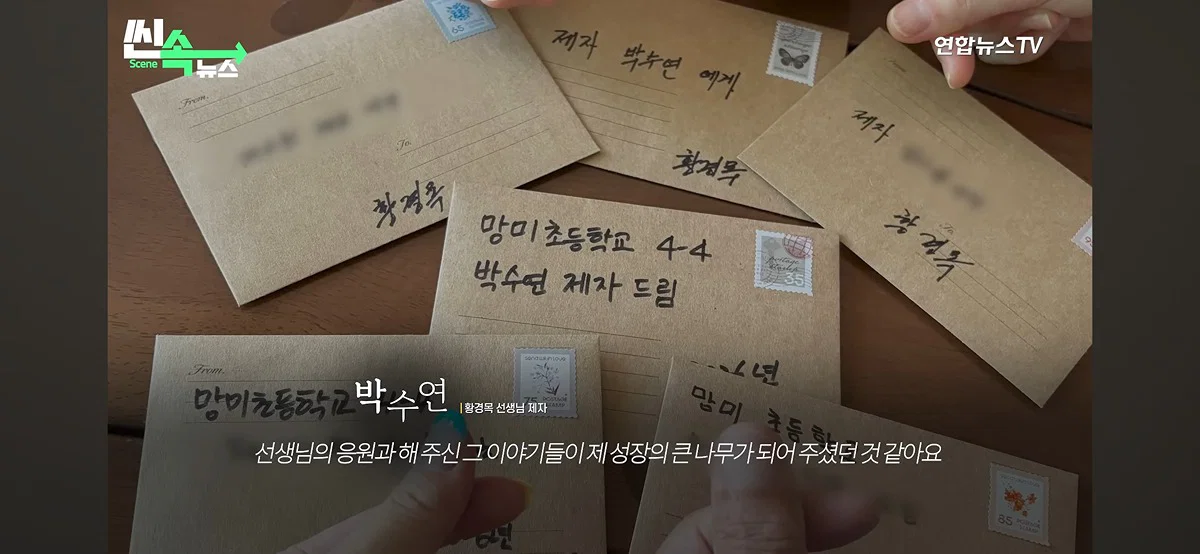 씬속뉴스
Scene
연합뉴스TV
From.
To.
황경목
65
제자 박수연 에게
황경목
제자
To.
황경목
망미초등학교 4-4
박수연 제자 드림
postage
35
From.
망미초등학교
35
망미 초등학교
65
박수연 | 황경목 선생님 제자
선생님의 응원과 해 주신 그 이야기들이 제 성장의 큰 나무가 되어 주셨던 것 같아요